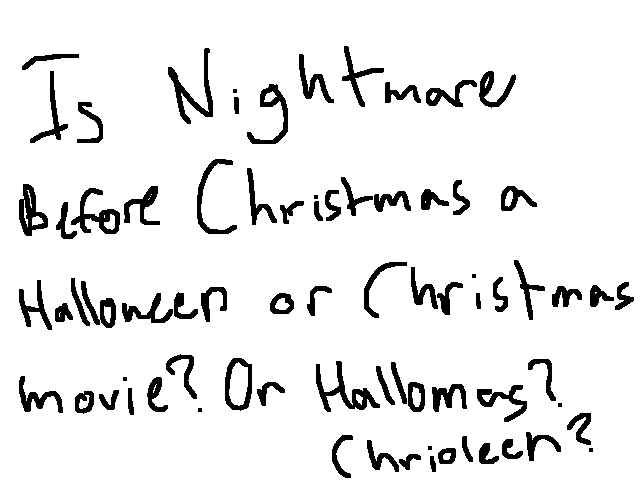 Is Nightmare
Before Christmas a
Halloween or Christmas
movie? Or Hallomas?
Chrioleen?